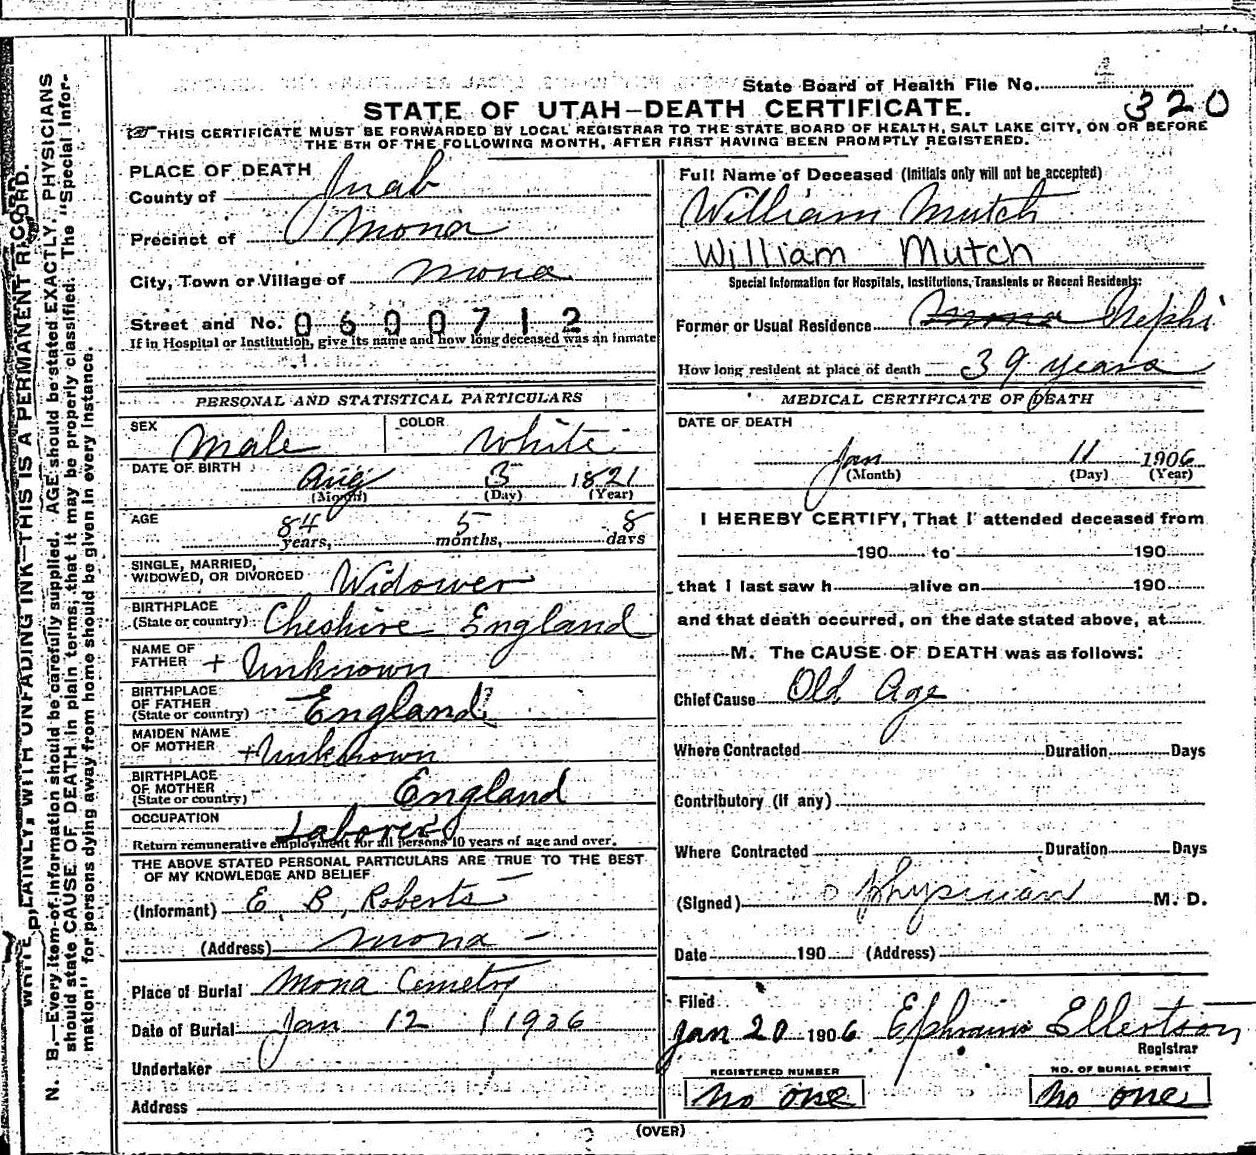 State Board of Health File No.
320
STATE OF UTAH—DEATH CERTIFICATE.
THIS CERTIFICATE MUST BE FORWARDED BY LOCAL REGISTRAR TO THE STATE BOARD OF HEALTH, SALT LAKE CITY, ON OR BEFORE
THE 5TH OF THE FOLLOWING MONTH, AFTER FIRST HAVING BEEN PROMPTLY REGISTERED.
PLACE OF DEATH
County of Juab
Precinct of Mona
City, Town or Village of Mona
Street and No. 0600712
If in Hospital or Institution, give its name and how long deceased was an inmate
PERSONAL AND STATISTICAL PARTICULARS
SEX Male COLOR White
DATE OF BIRTH Aug 3 1821
(Month) (Day) (Year)
AGE 84 years, 5 months, 8 days
SINGLE, MARRIED,
WIDOWED, OR DIVORCED Widower
BIRTHPLACE
(State or country) Cheshire England
NAME OF
FATHER + Unknown
BIRTHPLACE
OF FATHER
(State or country) England
MAIDEN NAME
OF MOTHER + Unknown
BIRTHPLACE
OF MOTHER
(State or country) England
OCCUPATION Laborer
Return remunerative employment for all persons 10 years of age and over.
THE ABOVE STATED PERSONAL PARTICULARS ARE TRUE TO THE BEST
OF MY KNOWLEDGE AND BELIEF
(Informant) E. B. Roberts
(Address) Mona
Place of Burial Mona Cemetry
Date of Burial Jan 12 1906
Undertaker
Address
Full Name of Deceased (Initials only will not be accepted)
William Mutch
William Mutch
Special Information for Hospitals, Institutions, Transients or Recent Residents:
Former or Usual Residence Mona Nephi
How long resident at place of death 39 years
MEDICAL CERTIFICATE OF DEATH
DATE OF DEATH
Jan 11 1906
(Month) (Day) (Year)
I HEREBY CERTIFY, That I attended deceased from
190 to 190
that I last saw h alive on 190
and that death occurred, on the date stated above, at
M. The CAUSE OF DEATH was as follows:
Chief Cause Old Age
Where Contracted Duration Days
Contributory (if any)
Where Contracted Duration Days
(Signed) physician M. D.
Date 190 (Address)
Filed
Jan 20 1906 Ephraim Ellertson
Registrar
REGISTERED NUMBER NO. OF BURIAL PERMIT
No one No one
(OVER)
WRITE PLAINLY, WITH UNFADING INK—THIS IS A PERMANENT RECORD.
N. B.—Every item of information should be carefully supplied. AGE should be stated EXACTLY. PHYSICIANS
should state CAUSE OF DEATH in plain terms, that it may be properly classified. The "Special Infor-
mation" for persons dying away from home should be given in every instance.